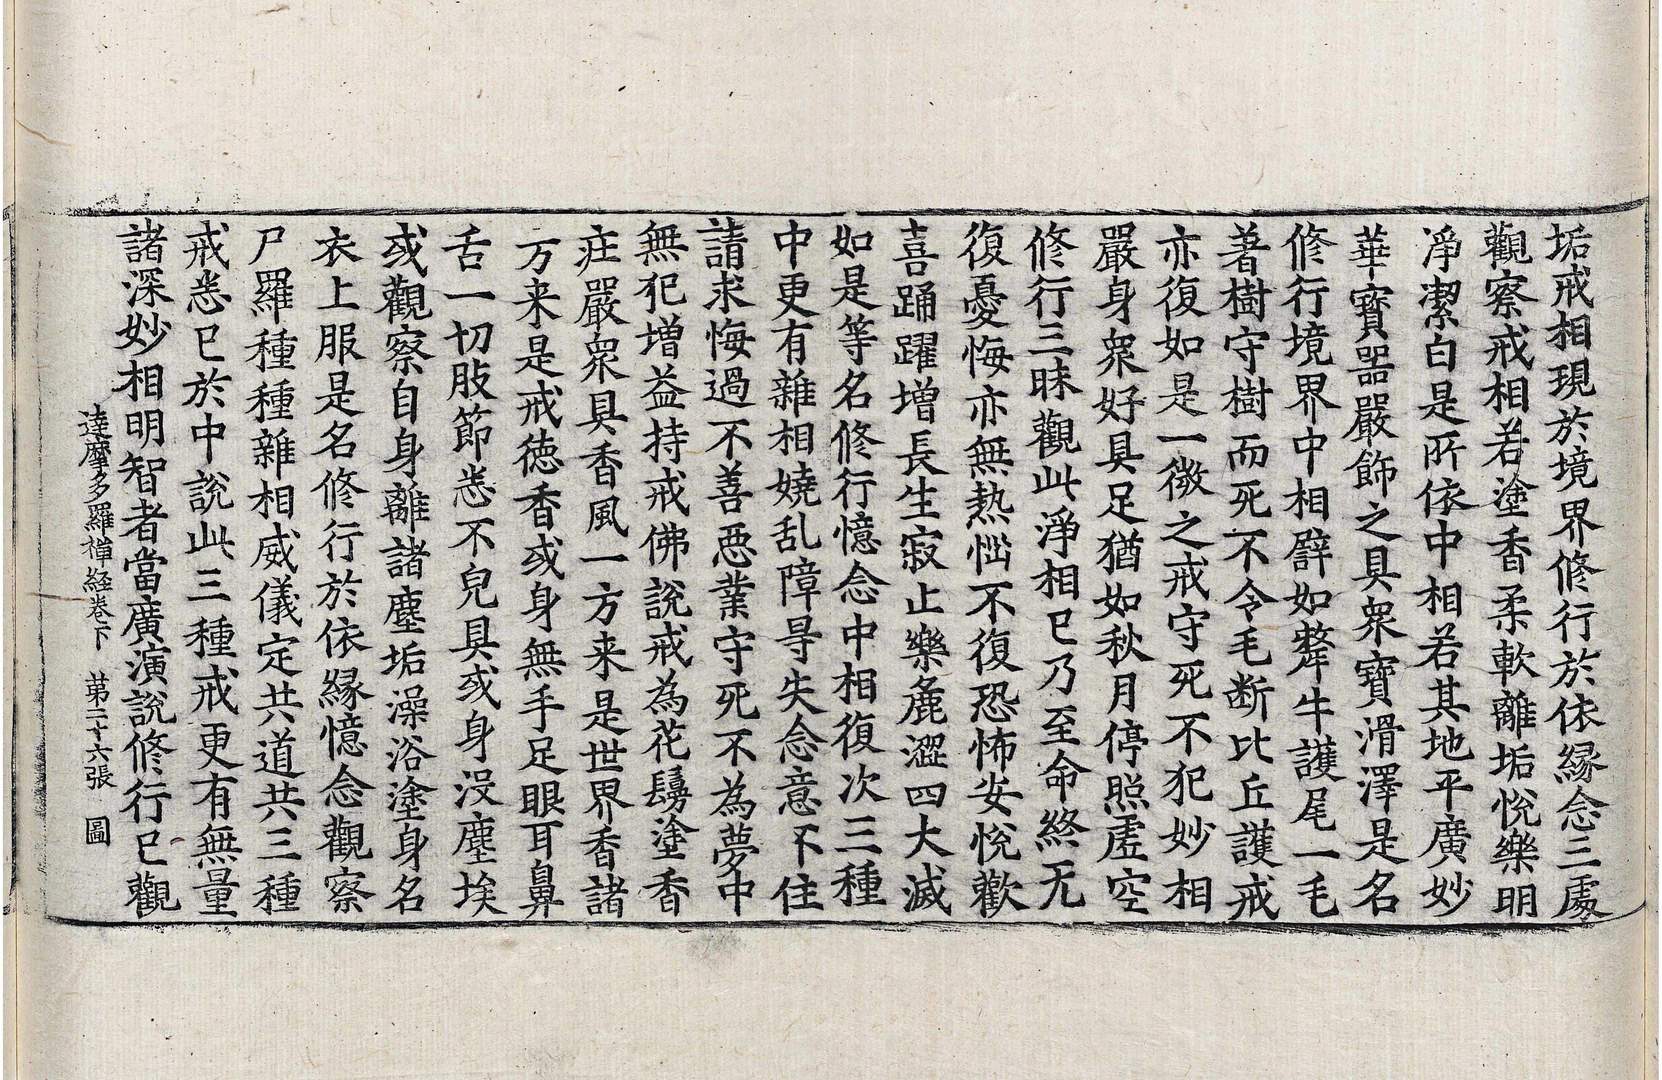 垢戒相現於境界修行於依緣念三處
觀察戒相若塗香柔軟離垢悅樂明
淨潔白是所依中相若其地平廣妙
華寶器嚴飾之具眾寶滑澤是名
修行境界中相譬如犛牛護尾一毛
著樹守樹而死不令毛断比丘護戒
亦復如是一微之戒守死不犯妙相
嚴身眾好具足猶如秋月停照虛空
修行三昧觀此淨相已乃至命終无
復憂悔亦無熱惱不復恐怖安悅歡
喜踊躍增長生寂止樂麁澀四大滅
如是等名修行憶念中相復次三種
中更有雜相嬈乱障㝵失念意不住
請求悔過不善惡業守死不為夢中
無犯增益持戒佛說戒為花鬘塗香
庄嚴眾具香風一方来是世界香諸
万来是戒徳香或身無手足眼耳鼻
舌一切肢節悉不皃具或身沒塵埃
或觀察自身離諸塵垢澡浴塗身名
衣上服是名修行於依緣憶念觀察
尸羅種種雜相威儀定共道共三種
戒悉已於中說此三種戒更有無量
諸深妙相明智者當廣演說修行已觀
達摩多羅禪経卷下　第二十六張　圖